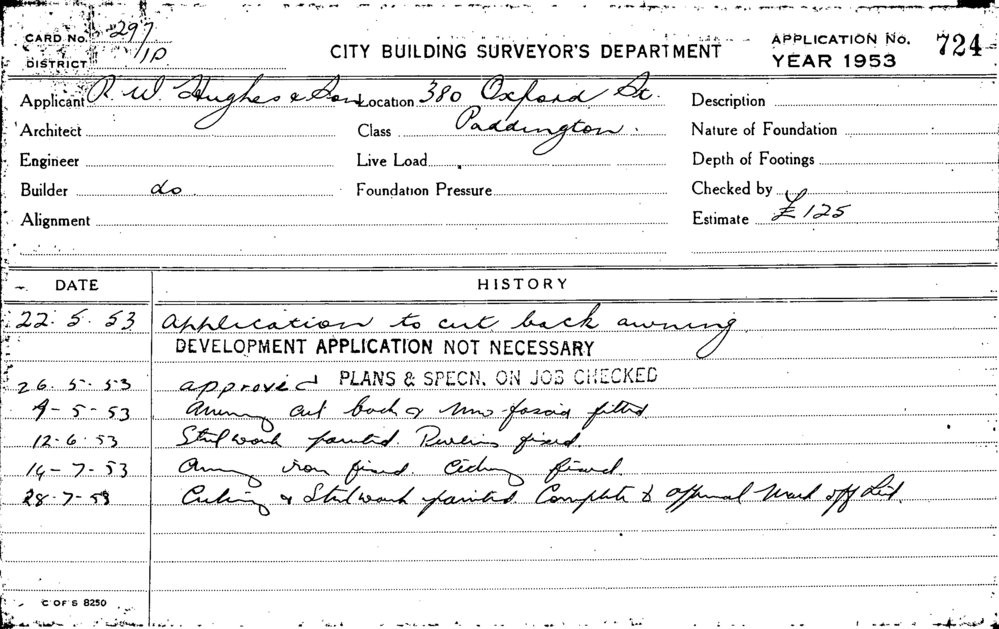 CARD No. 297
DISTRICT /10
CITY BUILDING SURVEYOR'S DEPARTMENT
APPLICATION No. 724
YEAR 1953
Applicant R. W. Hughes & Son Location 380 Oxford St. Description
Architect Class Paddington. Nature of Foundation
Engineer Live Load Depth of Footings
Builder do Foundation Pressure Checked by
Alignment Estimate £125
DATE HISTORY
22.5.53 Application to cut back awning
DEVELOPMENT APPLICATION NOT NECESSARY
26.5.53 approved PLANS & SPECN. ON JOB CHECKED
9-5-53 Awning cut back & new fascia fitted
12-6.53 Steel work painted. Purlins fixed.
14-7-53 Awning iron fixed. Ceiling fixed.
28-7-53 Ceiling & Steelwork painted. Complete to approval Mark off List.
C OF S 8250